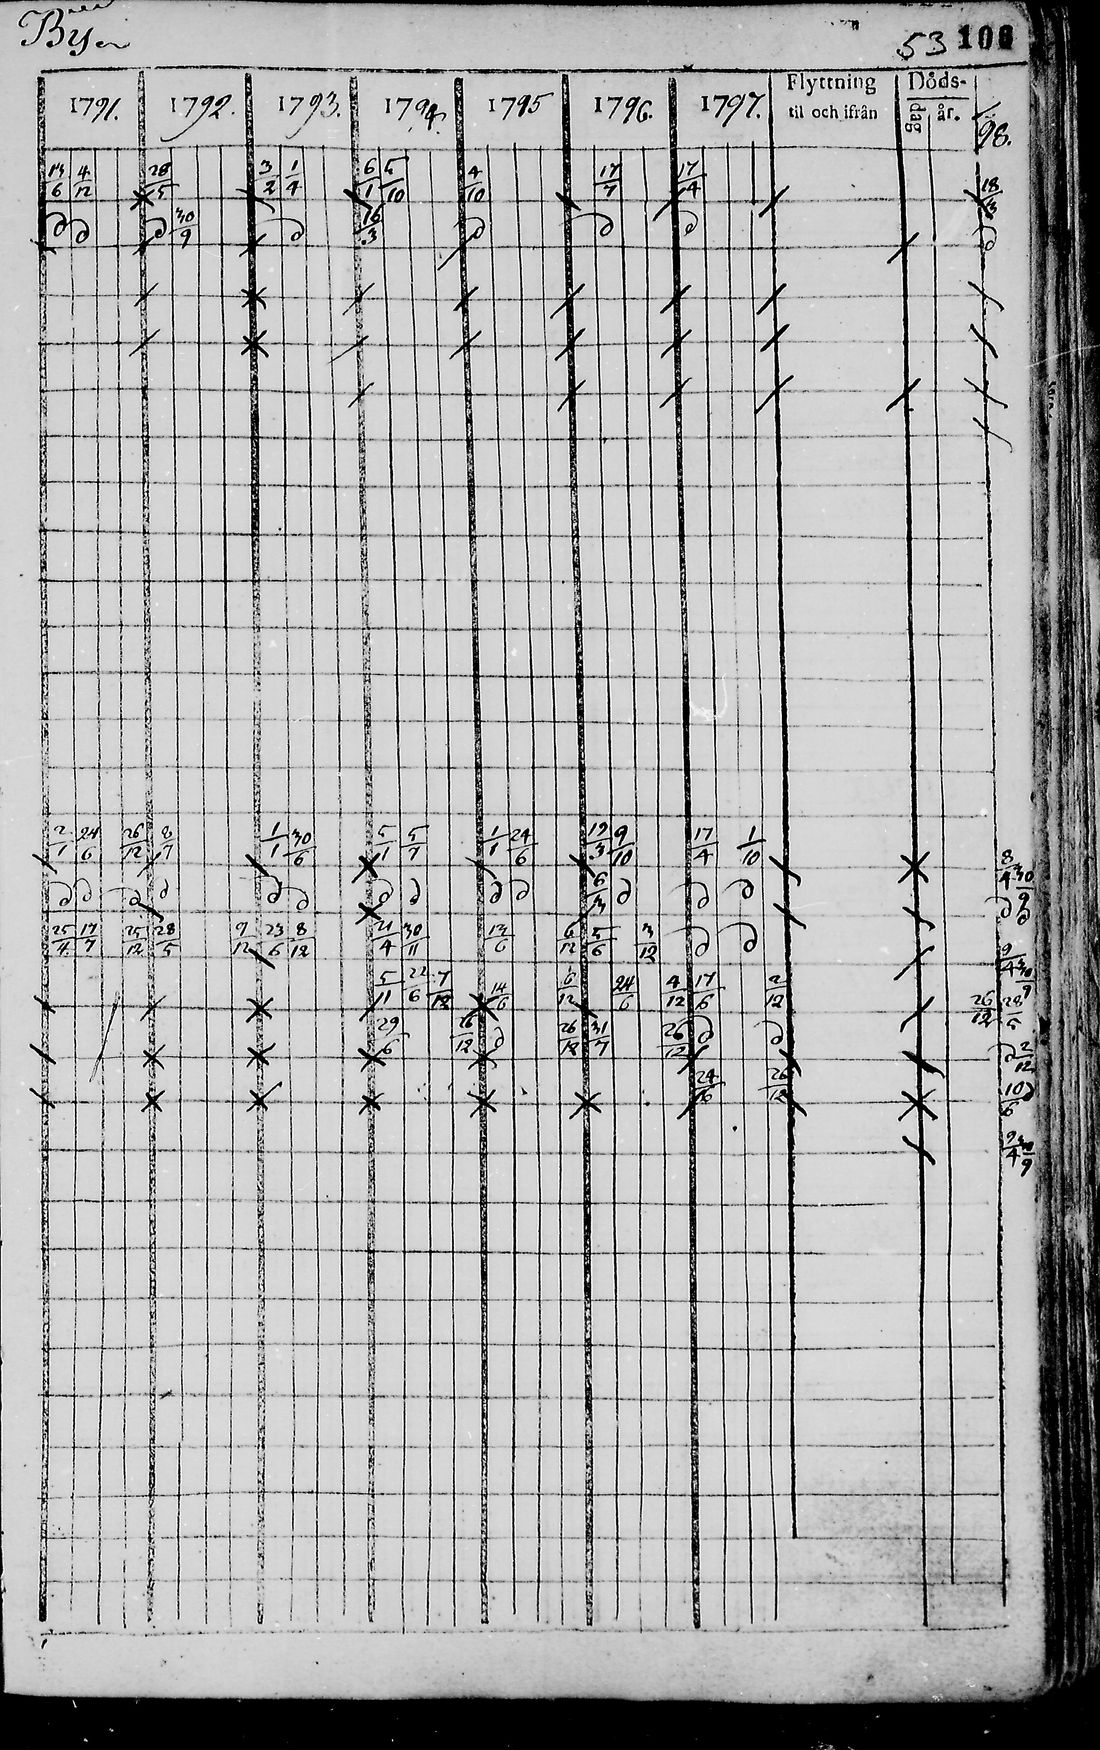 Byen
53 106
1791. 1792. 1793. 1794. 1795 1796. 1797. Flyttning til och ifrån Döds- dag år. 98.
4/12 28/5 3/2 1/4 6/1 5/10 4/10 17/7 17/4 18/3
d d d 30/9 d 16/3 d d d d
2/1 24/6 26/12 8/7 1/1 30/6 5/1 5/7 1/1 24/6 19/3 9/10 17/4 1/10 8/4 30/9
d d d d d d d d d d 6/3 d d d d d
25/4 17/7 25/12 28/5 9/12 23/6 8/12 21/4 30/11 13/6 6/12 5/6 3/12 d d 9/4 30/9
5/11 22/6 7/12 14/6 6/12 24/6 4/12 17/6 2/12 26/12 28/5
29/6 26/12 d 26/12 31/7 26/12 d d d 2/12
24/16 26/12 10/6 d
9/4 30/9